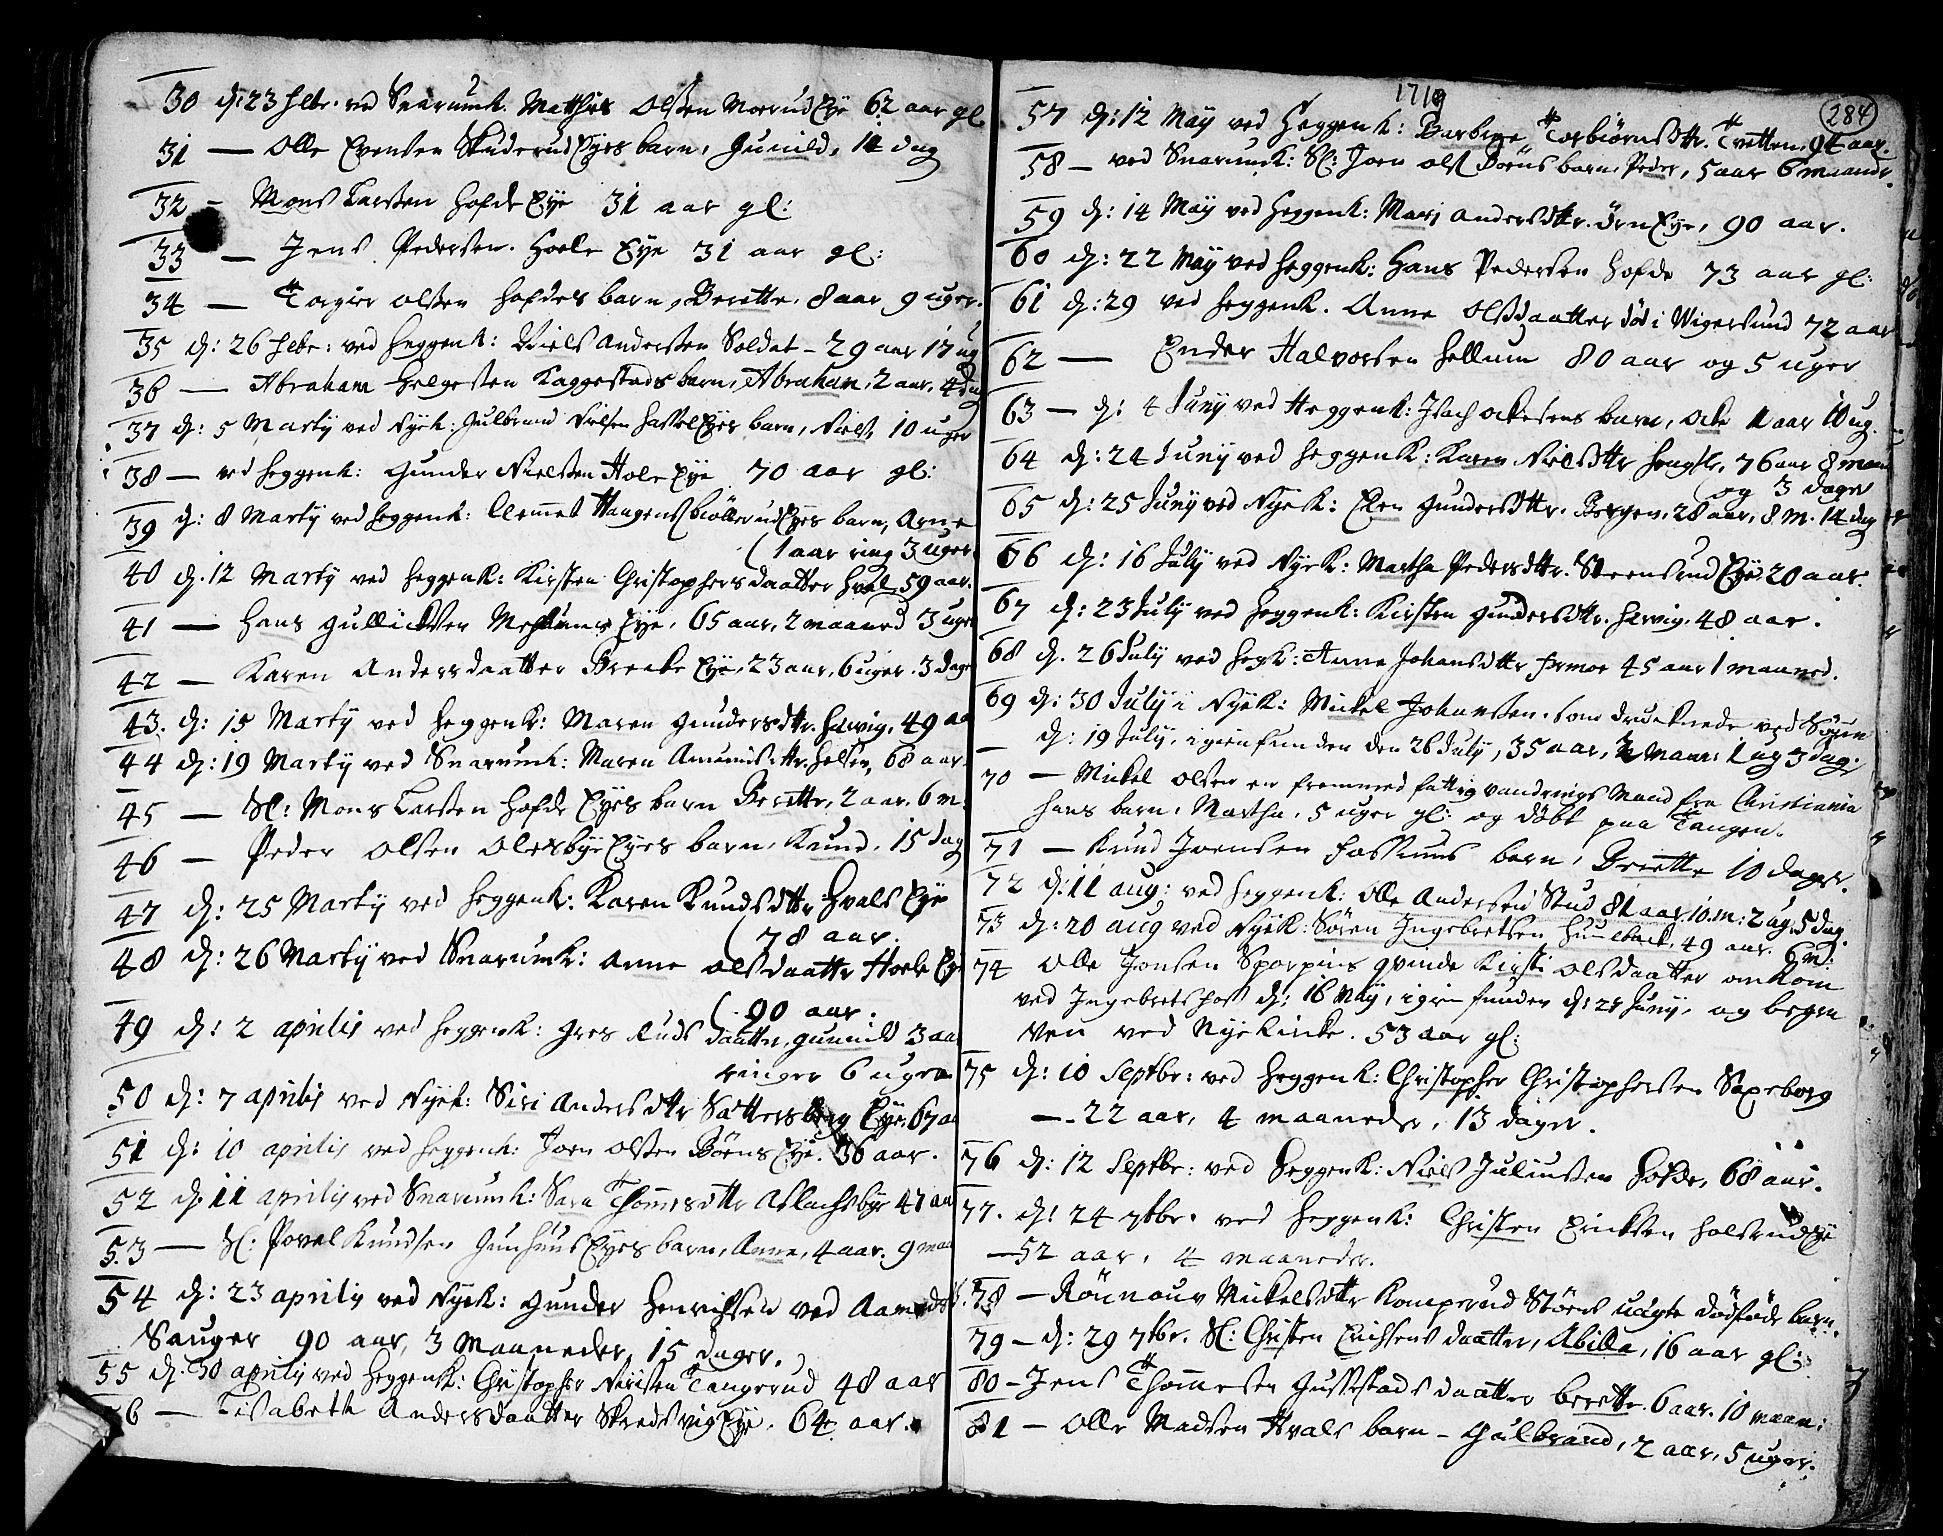 30 d: 23 Febr. ved Snarumk. Matthis Olsen Morud Eye 62 aar gl
31 — Olle Evensen Skuderud Eyes barn, Gunild, 11 dag
32 – Mons Larsen Hofde Eye 31 aar gl:
33 — Jens Pedersen Hoele Eye 31 aar gl:
34 — Torgier Olsen Hofdes barn, Berette, 8 aar 9 uger.
35 d: 26 Febr: ved Heggenk: Niels Andersen Soldat – 29 aar 17 ug
36 — Abraham Helgesen Kaggestads barn, Abraham, 2 aar, 4 dag
37 d: 5 Martij ved Nyek: Gulbrand Nielsen Hassel Eyes barn, Niels, 10 uger
38 — ved Heggenk: Gunder Nielsen Hole Eye 70 aar gl:
39 d: 8 Martij ved Heggenk: Clemmet Haugens biöllerud Eyes barn, Arne
(1 aar ring 3 uger.
40 d. 12 Martij ved Heggenk: Kirsten Christophersdaatter Hval 59 aar.
41 — Hans Gullichsen Mehlums Eye, 65 aar, 2 maaned 3 uger
42 — Karen Andersdaatter Breke Eye, 23 aar, 6 uger. 3 dage
43. d: 15 Martij ved Heggenk: Maren Gundersdttr. Hervig, 49 aa
44 d: 19 Martij ved Snarumk: Maren Amundsdttr. Helsen, 68 aar.
45 — Sl: Mons Larsen Hofde Eyes barn Berette, 2 aar. 6 m.
46 — Peder Olsen Olesbye Eyes barn, Knud, 15 dag
47 d: 25 Martij ved Heggenk: Karen Knudsdttr Hvals Eye
(78 aar.
48 d: 26 Martij ved Snarumk: Anne Olsdaattr Hoele Ey
(90 aar.
49 d: 2 aprilis ved Heggenk: Gres Ruds daattr, Gunnild 3 aar
ringer 6 uger
50 d: 7 aprilis ved Nyek: Siri Andersdttr Sattersberg Eye, 67 a
51 d: 10 aprilis ved Heggenk: Joen Olsen Börns Eye. 36 aar.
52 d. 11 aprilis ved Snarumk: Sara Thommesdttr Aslachsbye 47 aar
53 — Sl: Povel Knudsen Gunhuus Eyes barn, Anne, 4 aar. 9 maa
54 d: 23 aprilij ved Nyek: Gunder Henrichsen ved Aamods
Sauger 90 aar, 3 Maaneder, 15 dager.
55 d: 30 aprilij ved Heggenk: Christopher Tangerud 48 aar
56 — Lisabeth Andersdaatter Skredsvig Eye. 64 aar.
1719
284
57 d: 12 Maij ved Heggenk: Barbroe Torbiörnsdttr. Tvetten, 94 aar.
58 – ved Snarumk: Sl: Joen Ols Börns barn, Peder, 5 aar 6 maander.
59 d: 14 Maij ved Heggenk: Mari Andersdttr. Örn Eye, 90 aar.
60 d: 22 Maij ved Heggenk: Hans Pedersen Hofde 73 aar gl:
61 d: 29 ved Heggenk. Anne Olsdaatter död i Wigersund 72 aar
62 — Ender Halvorsen Hellum 80 aar og 5 uger
63 – d: 4 Junij ved Heggenk: Isach Ockesens barn, Ocke 1 aar 10 ug.
64 d: 24 Junij ved Heggenk: Karen Nielsdttr Hengsle, 76 aar 8 maan
(og 3 dage
65 d: 25 Junij ved Nyek: Elen Gundersdttr. Bergen, 28 aar, 8 m. 14 dag
66 d: 16 Julij ved Nyek: Martha Pedersdttr. Steensrud Eye 20 aar.
67 d: 23 Julij ved Heggenk: Kirsten Gundersdttr. Hervig, 48 aar.
68 d. 26 Julij ved Hegk: Anne Johansdttr Formoe 45 aar 1 maaned.
69 d: 30 Julij i Nyek: Mickel Johansen, som druknede ved Söyen
— d: 19 Julij, igien funden den 26 Julij, 35 aar, 2 maan: 1 ug 3 dag.
70 — Mickel Olsen en fremmed fattig vandrings Mand fra Christiania
hans barn, Martha, 5 uger gl: og döbt paa Tangen.
71 — Knud Joensen Fossums barn, Berette 10 dage.
72 d: 11 aug: ved Heggenk: Olle Andersen Stud 81 aar 10 m: 2 ug. 5 dag.
73 d: 20 aug ved Nyek: Sören Ingebretsen 49 aar. 6 m:
74 Olle Jonsen Sporpins qvinde Kirsti Olsdaatter omkom
ved Ingebretsfoss d: 16 Maij, igien funden d: 28 Junij, og begra
ven ved Nyekirke. 53 aar gl:
75 d: 10 Septbr: ved Heggenk: Christopher Christophersen Saxeborg
—. 22 aar, 4 maaneder, 13 dager.
76 d: 12 Septbr: ved Heggenk: Niels Juliusen Hofde, 68 aar.
77. d: 24 7tbr. ved Heggenk: Christen Ericksen Holsrud Eye
— 52 aar, 4 maaneder.
78 – Rönnouv Mickelsdttr Komperud Störens uægte dödföde barn.
79 – d: 29 7tbr. Sl: Christen Erichsens daatter, Abilla, 16 aar gl:
80 – Jens Thommesen Gussestads daatter berette. 6 aar. 10 maan:
81 – Olle Madsen Hvals barn – Gulbrand, 2 aar, 5 uger.